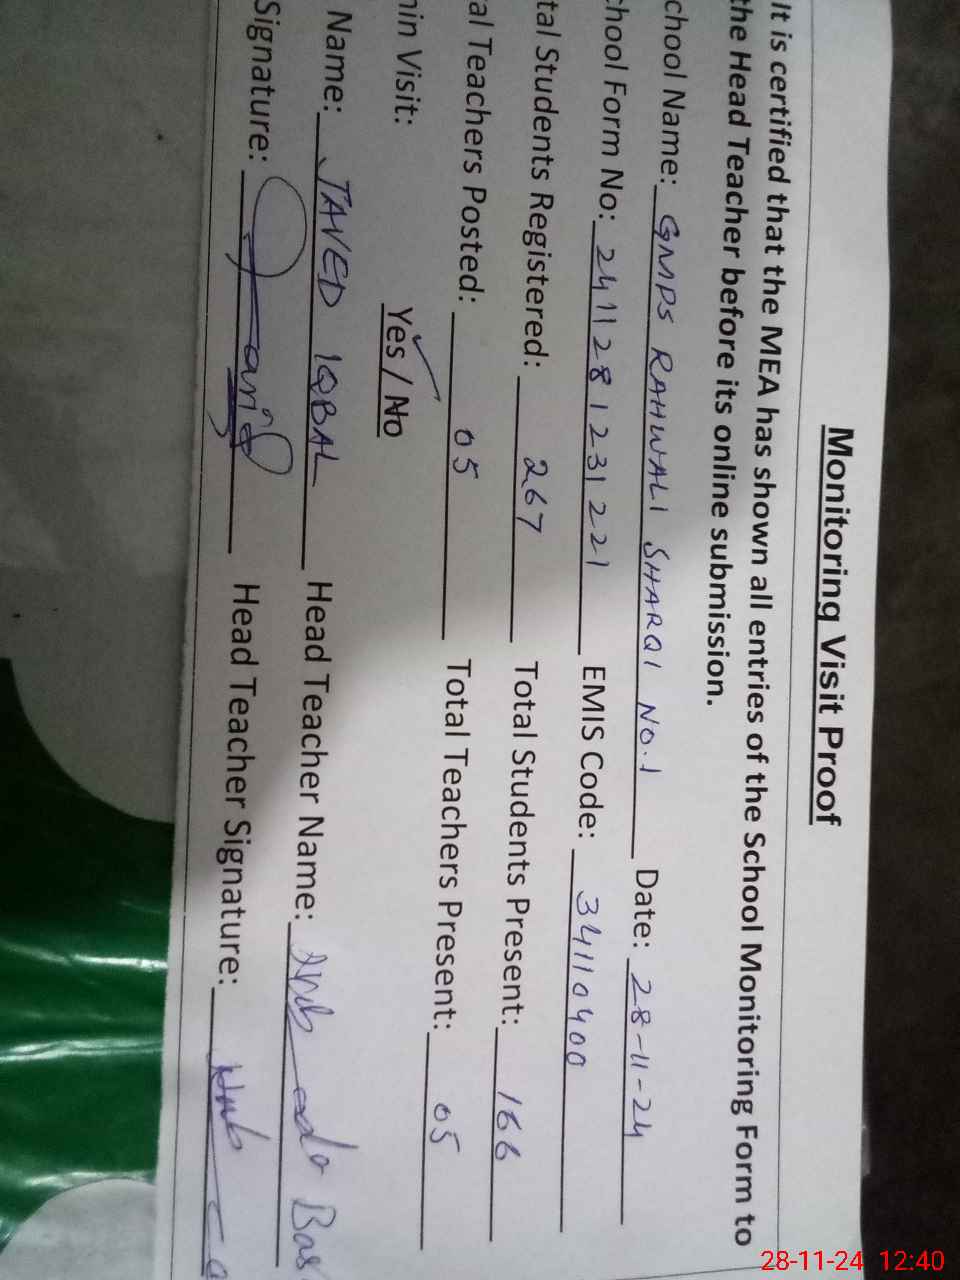 Monitoring Visit Proof
It is certified that the MEA has shown all entries of the School Monitoring Form to
the Head Teacher before its online submission.
chool Name: GMPS RAHWALI SHARQI NO.1 Date: 28-11-24
chool Form No: 2411281231221 EMIS Code: 34110400
tal Students Registered: 267 Total Students Present: 166
al Teachers Posted: 05 Total Teachers Present: 05
in Visit: Yes / No
Name: JAVED IQBAL Head Teacher Name:
Signature: Head Teacher Signature:
28-11-24 12:40